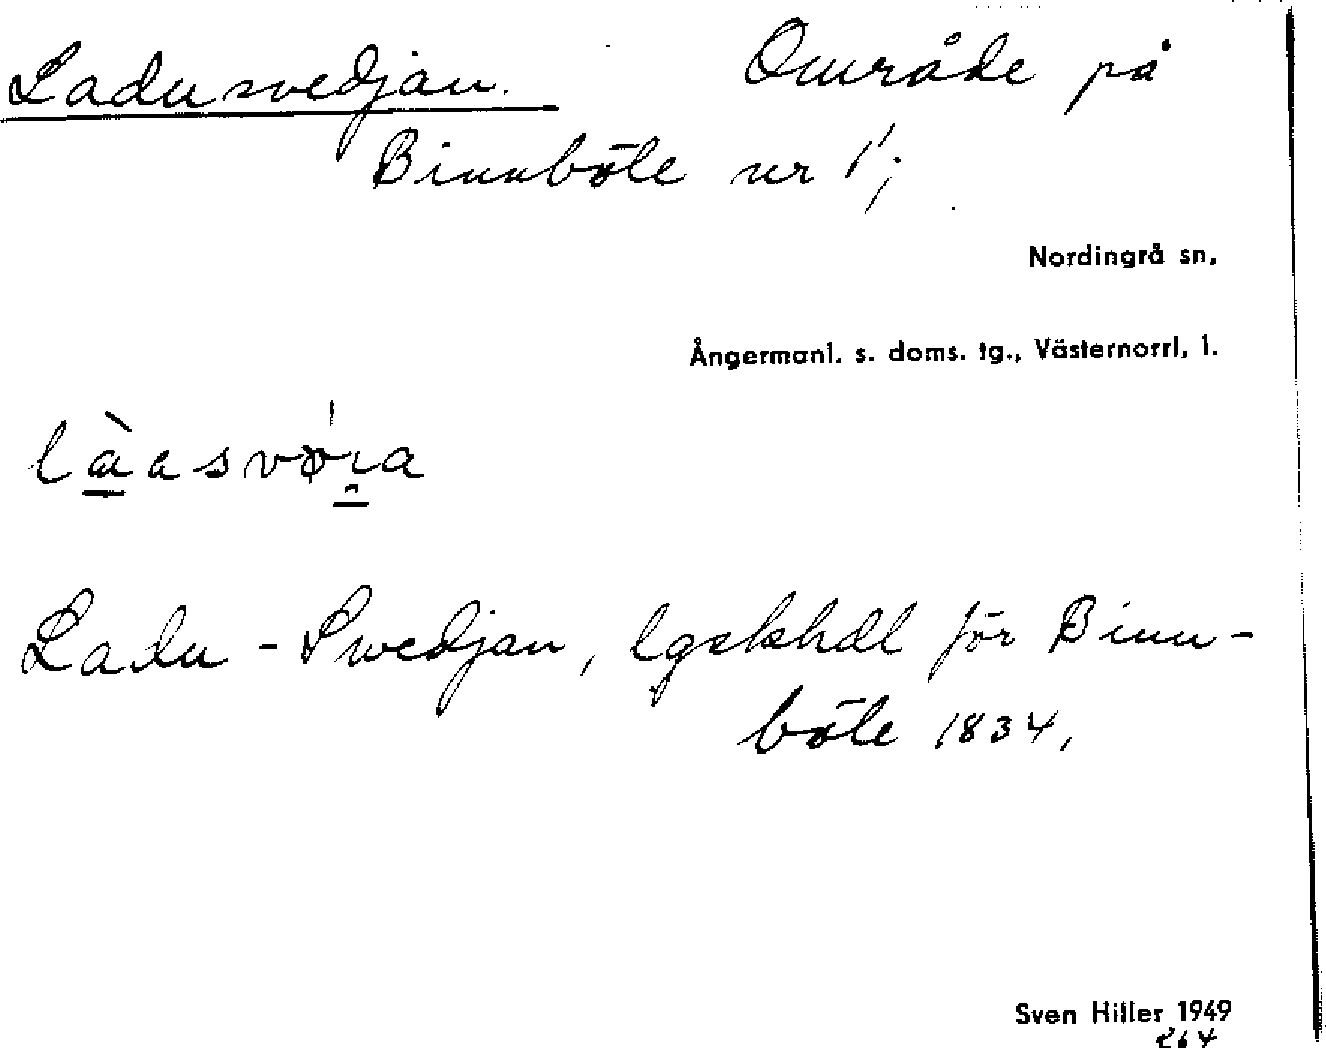 Ladusvedjan. Område på
Binnböle nr 1;
Nordingrå sn,
Ångermanl. s. doms. tg., Västernorrl, l.
Ladu - Swedjan, lgskhdl för Binn-
böle 1834,
Sven Hiller 1949
264